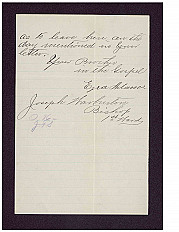 as to leave here on the
day mentioned in your
letter.
Your Brother
in the Gospel
Ezra
Joseph Warburton
Bishop
1st Ward